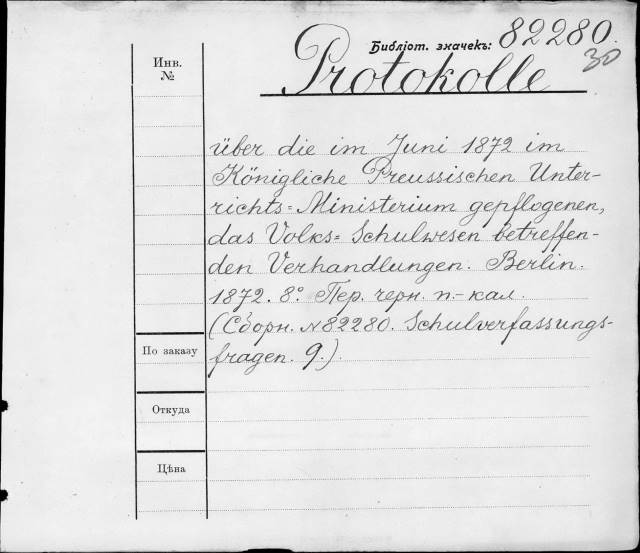 Библіот. значекъ: 82280.
30
Инв.
№
Protokolle
über die im Juni 1872 im
Königliche Preussischen Unter-
richts=Ministerium gepflogenen,
das Volks=Schulwesen betreffen-
den Verhandlungen. Berlin.
1872. 8°. Пер. черн. п.-кал.
(Сборн. № 82280. Schulverfassungs-
fragen. 9.).
По заказу
Откуда
Цѣна